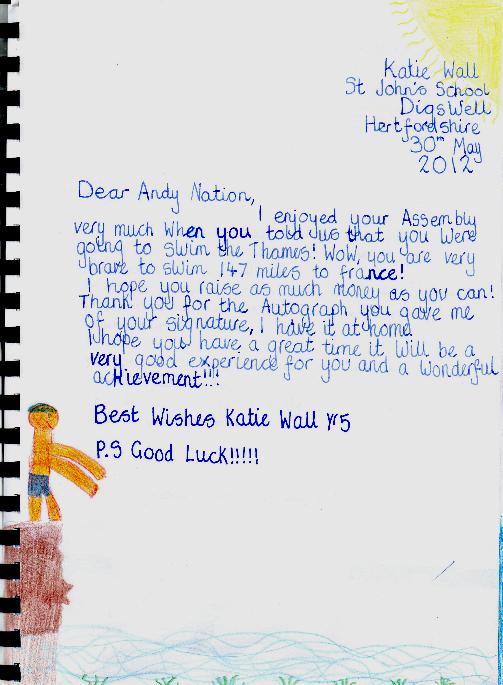 Katie Wall
St John's School
Digswell
Hertfordshire
30th May
2012
Dear Andy Nation,
I enjoyed your Assembly
very much when you told us that you were
going to swim the Thames! Wow, you are very
brave to swim 147 miles to france!
I hope you raise as much money as you can!
Thank you for the Autograph you gave me
of your signature, I have it at home
I hope you have a great time it will be a
very good experience for you and a wonderful
achievement!!!
Best Wishes Katie Wall yr5
P.S Good Luck!!!!!